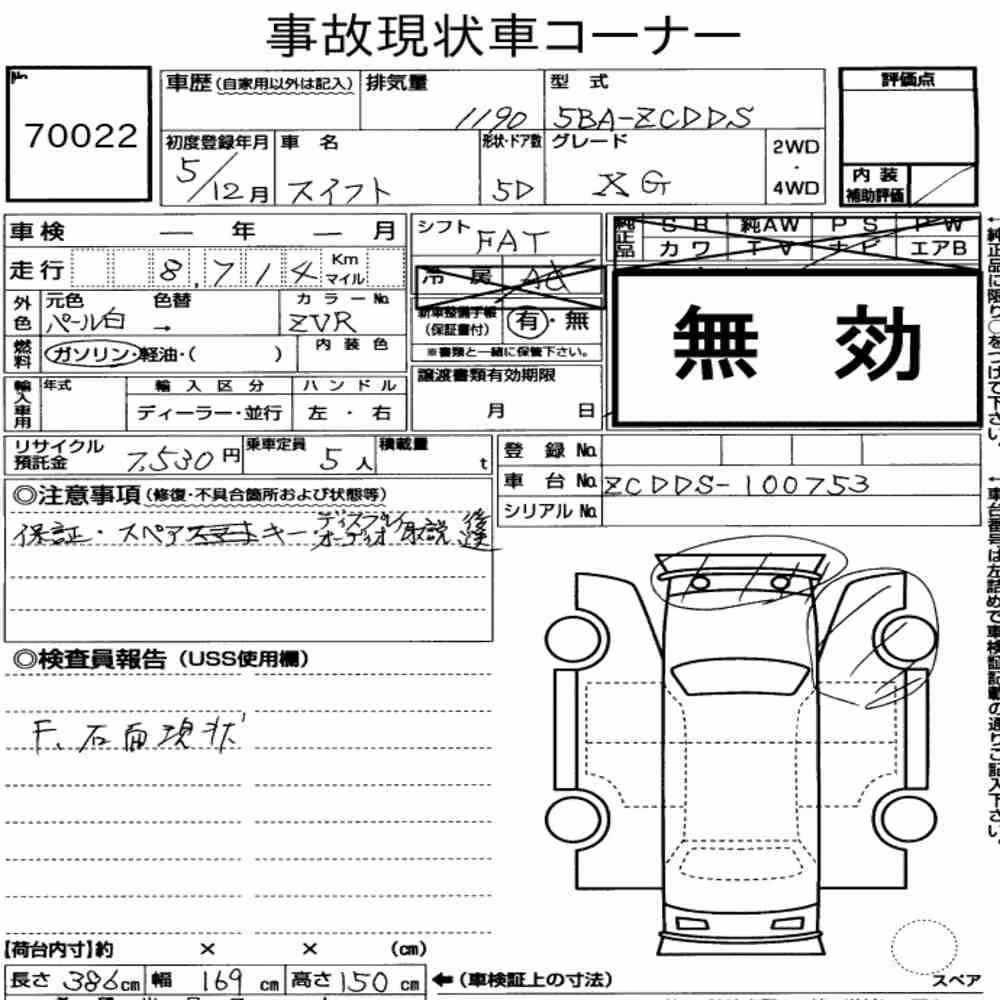 事故現状車コーナー
No.
70022
車歴(自家用以外は記入) 排気量 1190 型式 5BA-ZCDDS
評価点
初度登録年月 5/12月 車名 スイフト 形状・ドア数 5D グレード XG 2WD・4WD
内装補助評価
車検 ー 年 ー 月 シフト FAT 純正品 SR 純AW PS PW
カワ TV ナビ エアB
走行 8,714 Km マイル 冷房 AC
無効
外色 元色 パール白 色替 → カラーNo. ZVR 新車整備手帳(保証書付) 有・無
※書類と一緒に保管下さい。
燃料 ガソリン・軽油・( ) 内装色
譲渡書類有効期限 月 日
輸入車用 年式 輸入区分 ディーラー・並行 ハンドル 左・右
リサイクル預託金 7,530円 乗車定員 5人 積載量 t
登録No.
車台No. ZCDDS-100753
シリアルNo.
◎注意事項(修復・不具合箇所および状態等)
保証・スペアスマートキー・ディスプレイオーディオ取説 後送
◎検査員報告(USS使用欄)
F、右面現状
【荷台内寸】約 × × (cm)
長さ 386cm 幅 169cm 高さ 150cm ←(車検証上の寸法)
スペア
←純正品に限り○をつけて下さい。
←車台番号は左詰めで車検証記載の通りご記入下さい。